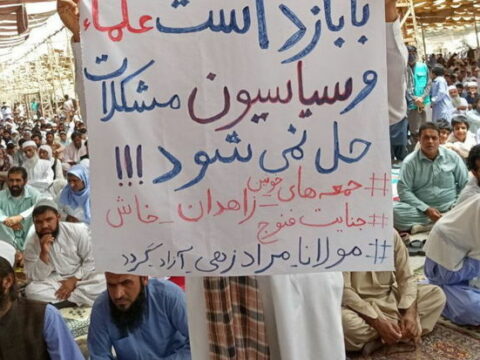 با بازداشت علماء
و سیاسیون مشکلات
حل نمی شود!!!
#جمعه های خونین_زاهدان_خاش
#جنایت فنوج
#مولانا_مرادزهی_آزاد_گردد